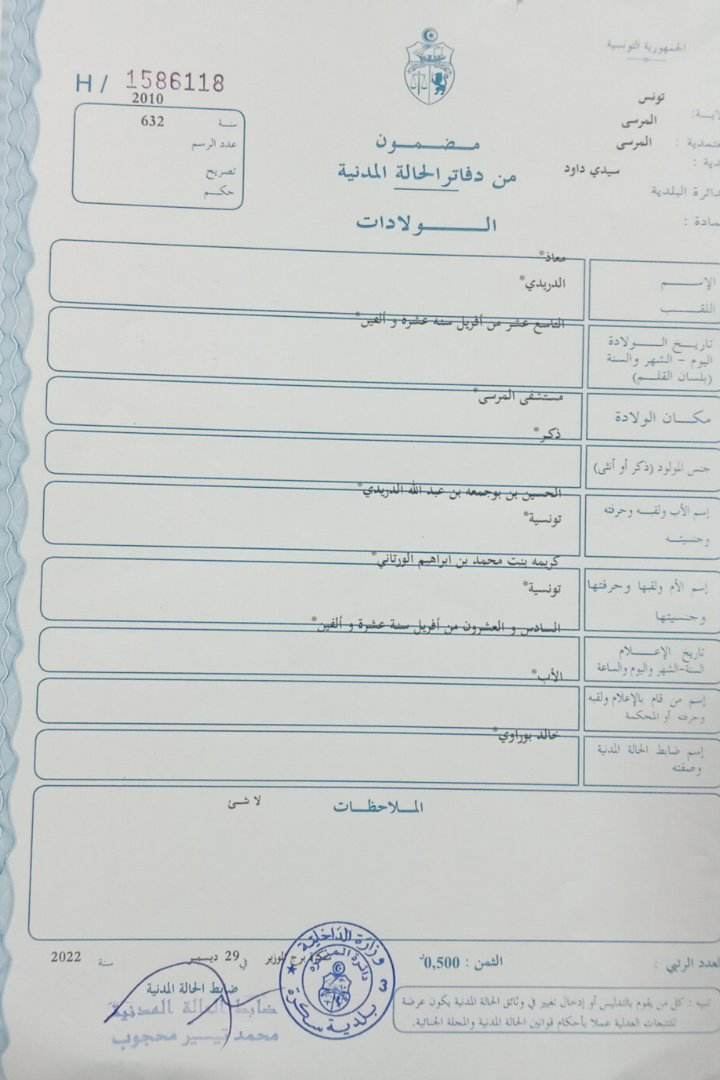 الجمهورية التونسية
H / 1586118
2010
سنة 632
عدد الرسم
تصريح
حكم
تونس
المرسى
المرسى
سيدي داود
مضمون
من دفاتر الحالة المدنية
الولادات
الإسم
اللقب
معاذ*
الدريدي*
تاريخ الولادة
اليوم - الشهر والسنة
(بلسان القلم)
التاسع عشر من أفريل سنة عشرة و ألفين*
مكان الولادة
مستشفى المرسى*
جنس المولود (ذكر أو أنثى)
ذكر*
إسم الأب ولقبه وحرفته
وجنسيته
الحسين بن بوجمعه بن عبد الله الدريدي*
تونسية*
إسم الأم ولقبها وحرفتها
وجنسيتها
كريمه بنت محمد بن ابراهيم الورتاني*
تونسية*
تاريخ الإعلام
السنة-الشهر واليوم والساعة
السادس و العشرون من أفريل سنة عشرة و ألفين*
إسم من قام بالإعلام ولقبه
وحرفته أو المحكمة
الأب*
إسم ضابط الحالة المدنية
وصفته
خالد بوراوي*
الملاحظات
لا شئ
الثمن : 0,500
في 29 ديسمبر سنة 2022
ضابط الحالة المدنية
ضابط الحالة المدنية
محمد تيسير محجوب
وزارة الداخلية
بلدية سكرة
3
تنبيه : كل من يقوم بالتدليس أو إدخال تغيير في وثائق الحالة المدنية يكون عرضة
للتتبعات العدلية عملا بأحكام قوانين الحالة المدنية والمجلة الجنائية.